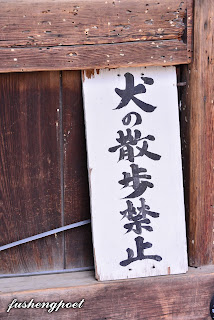 犬の散歩禁止
fushengpoet